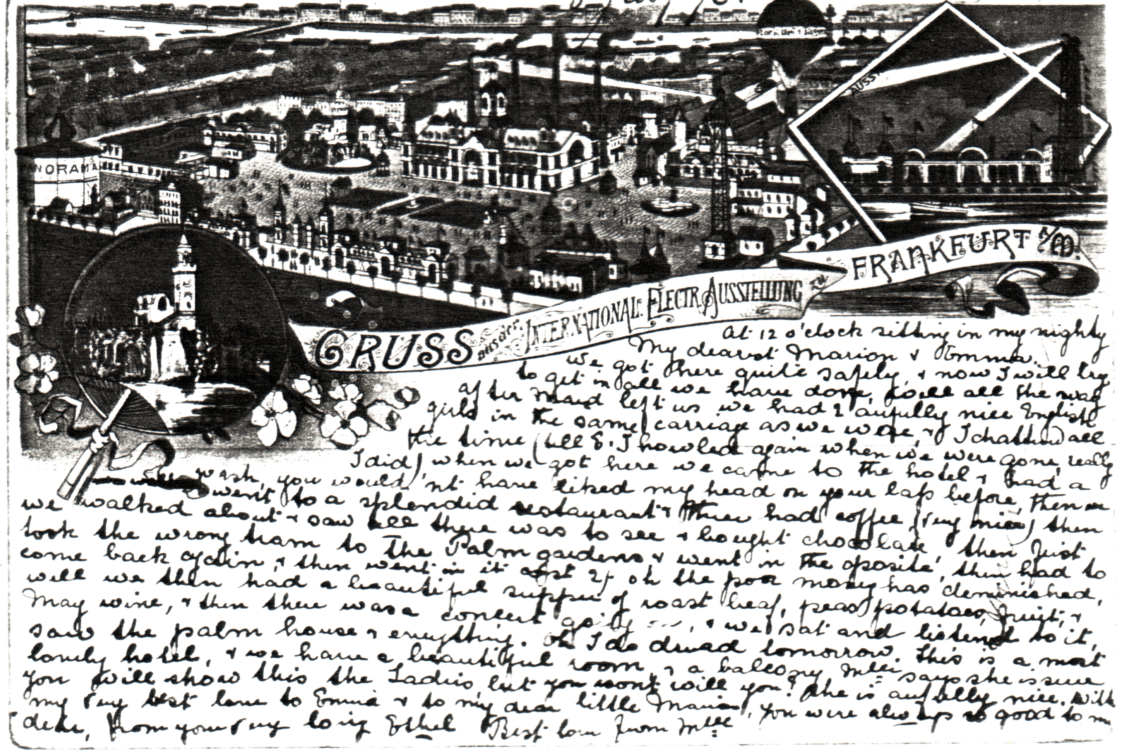 NORAMA
GRUSS aus der INTERNATIONAL. ELECTR. AUSSTELLUNG ZU FRANKFURT a/M.
At 12 o'clock sitting in my nighty
My dearest Marion & Emma.
we got there quite safely, & now I will try
to get in all we have done, well all the way
after Maud left us we had 2 aufully nice English
girls in the same carriage as we were, & I chatted all
the time (till E. I howled again when we were gone, really
I did) when we got here we came to the hotel & had a
wash, you would'nt have liked my head on your lap before then we
went to a splendid restaurant & there had coffee (very nice) then
we walked about & saw all there was to see & bought chocolate, then just
took the wrong tram to the Palm gardens & went in the oposite, then had to
come back again, & then went in it cost 2/- oh the poor money has deminished,
well we then had a beautiful supper of roast beaf, peas potatoes, fruit, &
May wine, & then there was a concert going, & we sat and listend to it,
saw the palm house & everything. Oh I do dread tomorrow. This is a most
lovely hotel, & we have a beautiful room, & a balcony Mlle says she is sure
you will show this the Ladies, but you wont will you? She is aufully nice. With
my very best love to Emma & to my dear little Marion, you were always so good to me
dear, from your very loving Ethel Best love from Mlle